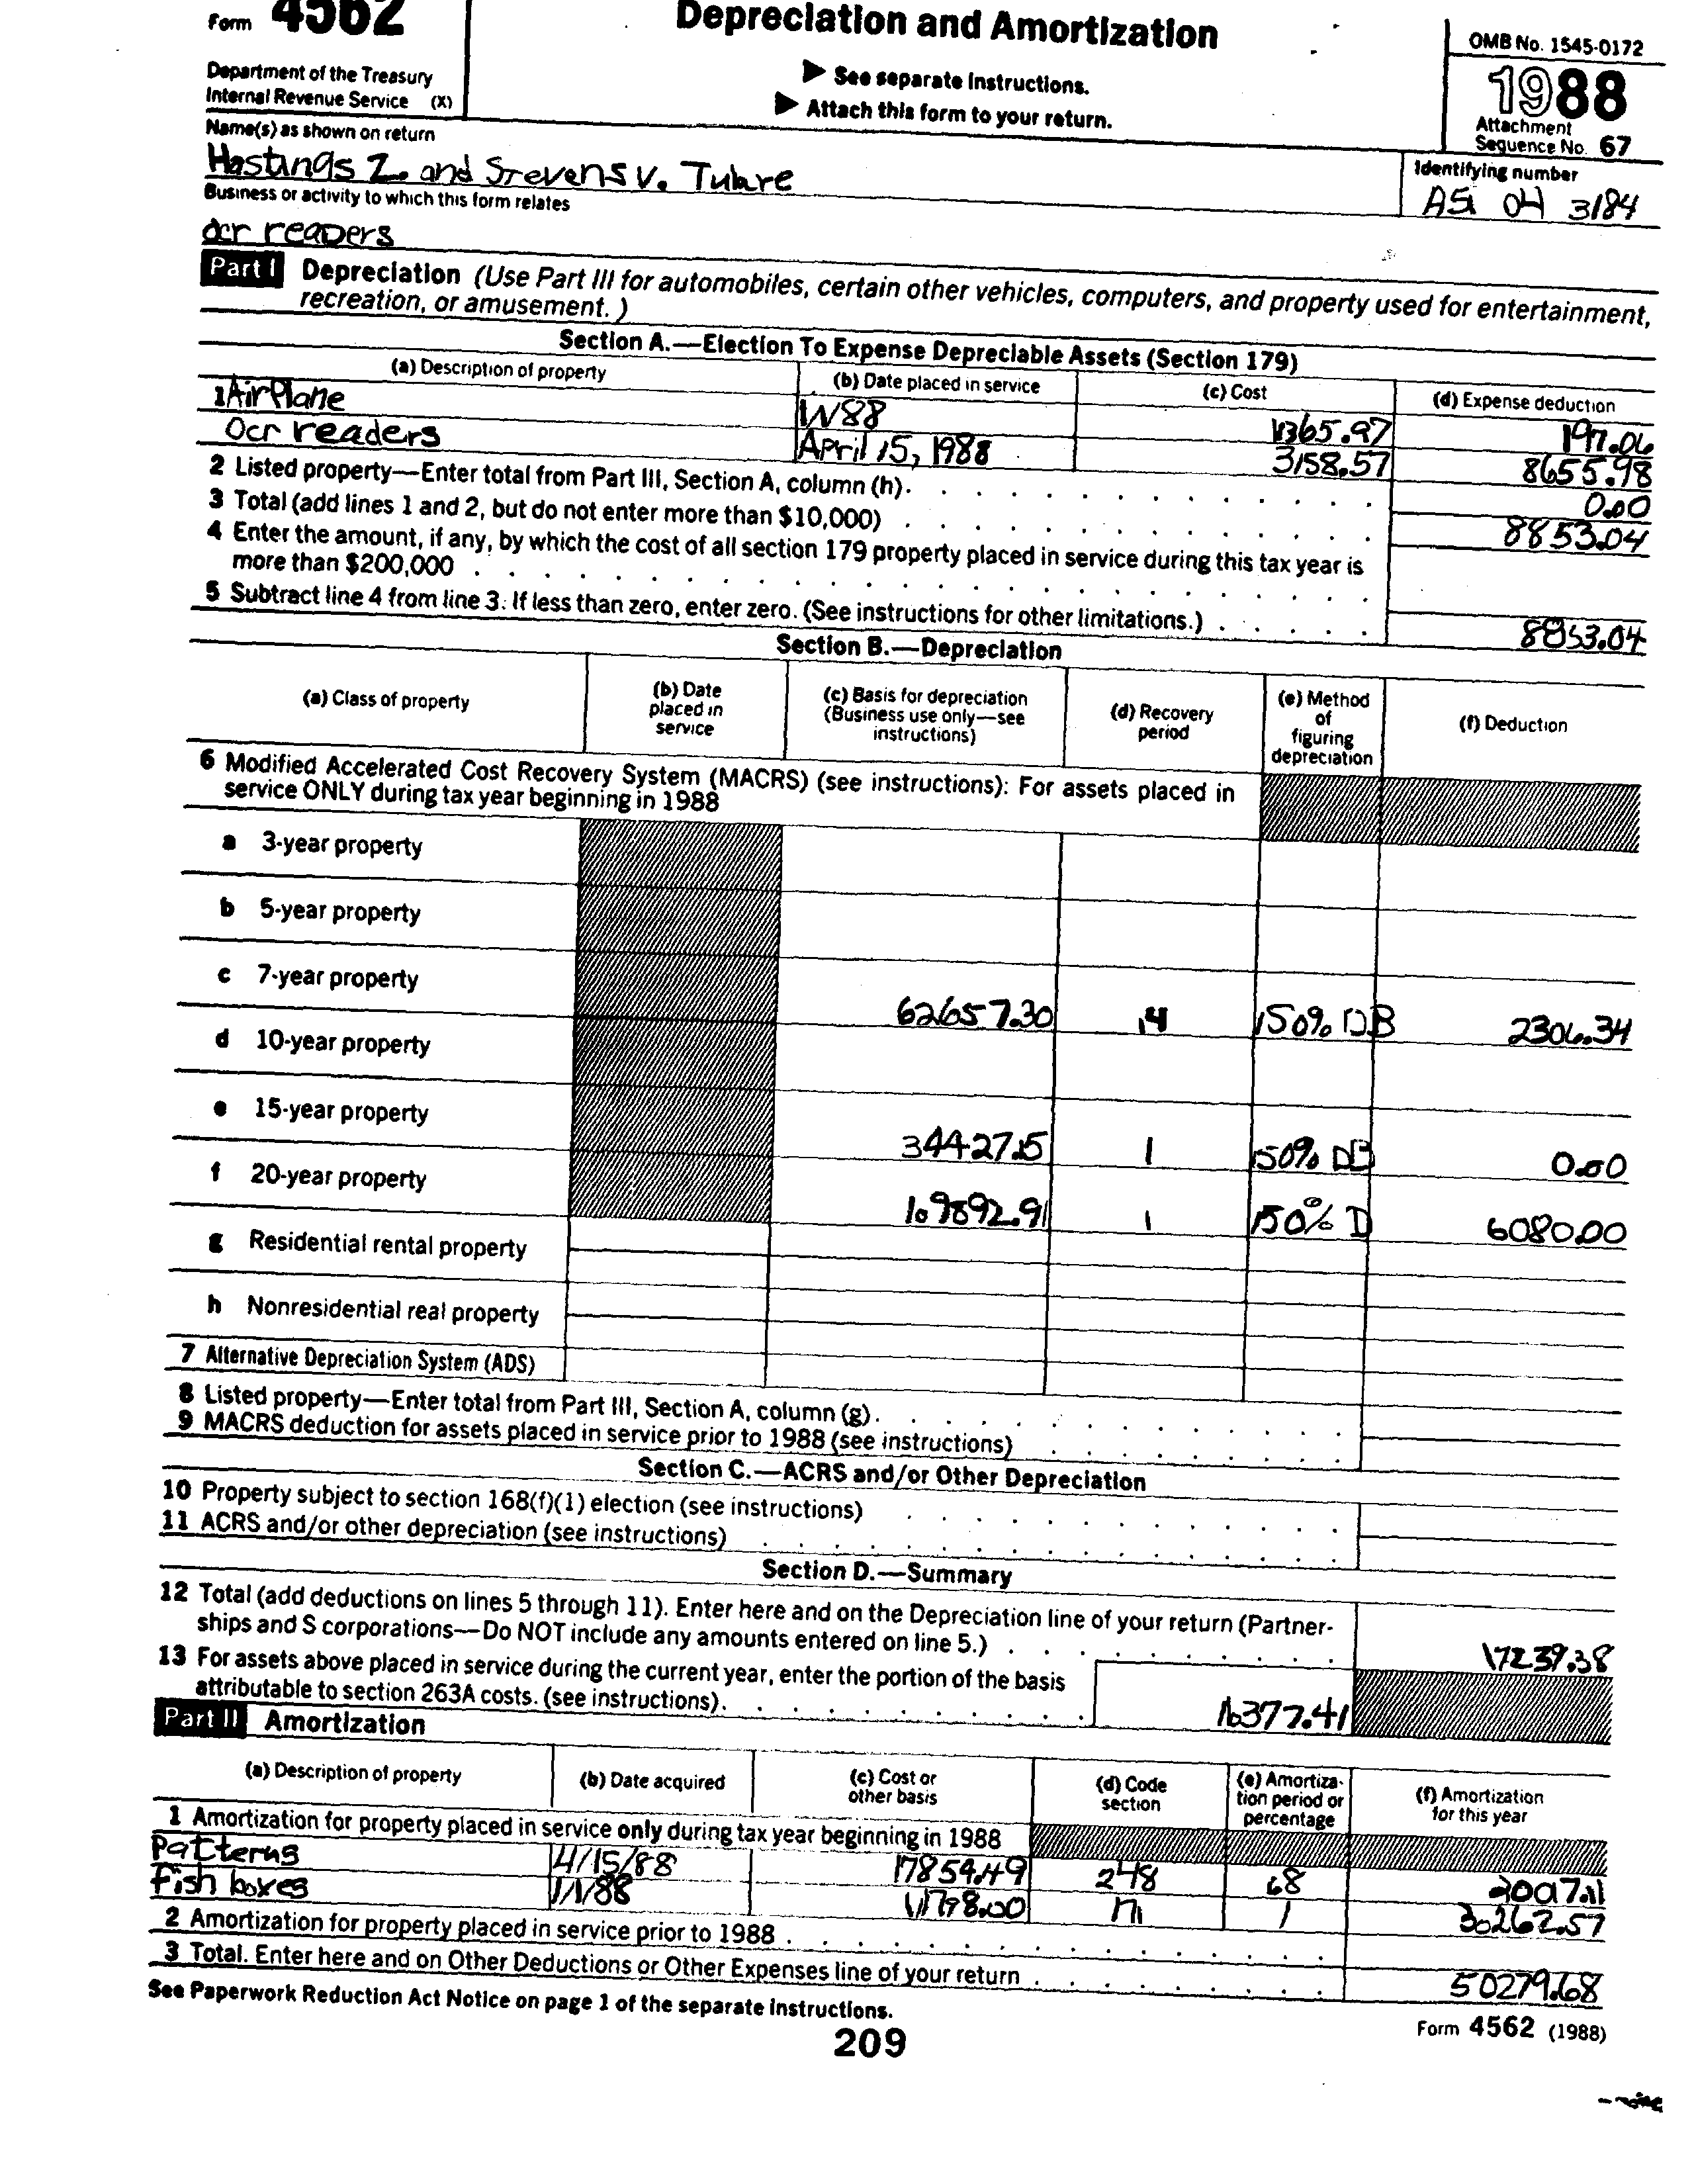 Form 4562
Depreciation and Amortization
OMB No. 1545-0172
Department of the Treasury
Internal Revenue Service (X)
▶ See separate instructions.
▶ Attach this form to your return.
1988
Attachment
Sequence No. 67
Name(s) as shown on return
Identifying number
Hastings Z. and Stevens V. Tulare
04 3184
Business or activity to which this form relates
ocr readers
Part I Depreciation (Use Part III for automobiles, certain other vehicles, computers, and property used for entertainment,
recreation, or amusement.)
Section A.—Election To Expense Depreciable Assets (Section 179)
(a) Description of property (b) Date placed in service (c) Cost (d) Expense deduction
1 AirPlane 197.06
Ocr readers April 15, 1988 3158.57 8655.98
2 Listed property—Enter total from Part III, Section A, column (h). 0.00
3 Total (add lines 1 and 2, but do not enter more than $10,000) 8853.04
4 Enter the amount, if any, by which the cost of all section 179 property placed in service during this tax year is
more than $200,000
5 Subtract line 4 from line 3. If less than zero, enter zero. (See instructions for other limitations.) 8853.04
Section B.—Depreciation
(a) Class of property (b) Date placed in service (c) Basis for depreciation (Business use only—see instructions) (d) Recovery period (e) Method of figuring depreciation (f) Deduction
6 Modified Accelerated Cost Recovery System (MACRS) (see instructions): For assets placed in
service ONLY during tax year beginning in 1988
a 3-year property
b 5-year property
c 7-year property 62657.30 14 150% DB 2306.34
d 10-year property
e 15-year property 34427.15 1 150% DB 0.00
f 20-year property 109892.91 1 150% D 6080.00
g Residential rental property
h Nonresidential real property
7 Alternative Depreciation System (ADS)
8 Listed property—Enter total from Part III, Section A, column (g).
9 MACRS deduction for assets placed in service prior to 1988 (see instructions)
Section C.—ACRS and/or Other Depreciation
10 Property subject to section 168(f)(1) election (see instructions)
11 ACRS and/or other depreciation (see instructions)
Section D.—Summary
12 Total (add deductions on lines 5 through 11). Enter here and on the Depreciation line of your return (Partner-
ships and S corporations—Do NOT include any amounts entered on line 5.) 17239.38
13 For assets above placed in service during the current year, enter the portion of the basis
attributable to section 263A costs. (see instructions). 16377.41
Part II Amortization
(a) Description of property (b) Date acquired (c) Cost or other basis (d) Code section (e) Amortization period or percentage (f) Amortization for this year
1 Amortization for property placed in service only during tax year beginning in 1988
Patterns 4/15/88 17859.49 248 68
fish boxes 1/1/88 11798.00 1 30262.57
2 Amortization for property placed in service prior to 1988
3 Total. Enter here and on Other Deductions or Other Expenses line of your return 50279.68
See Paperwork Reduction Act Notice on page 1 of the separate instructions.
Form 4562 (1988)
209